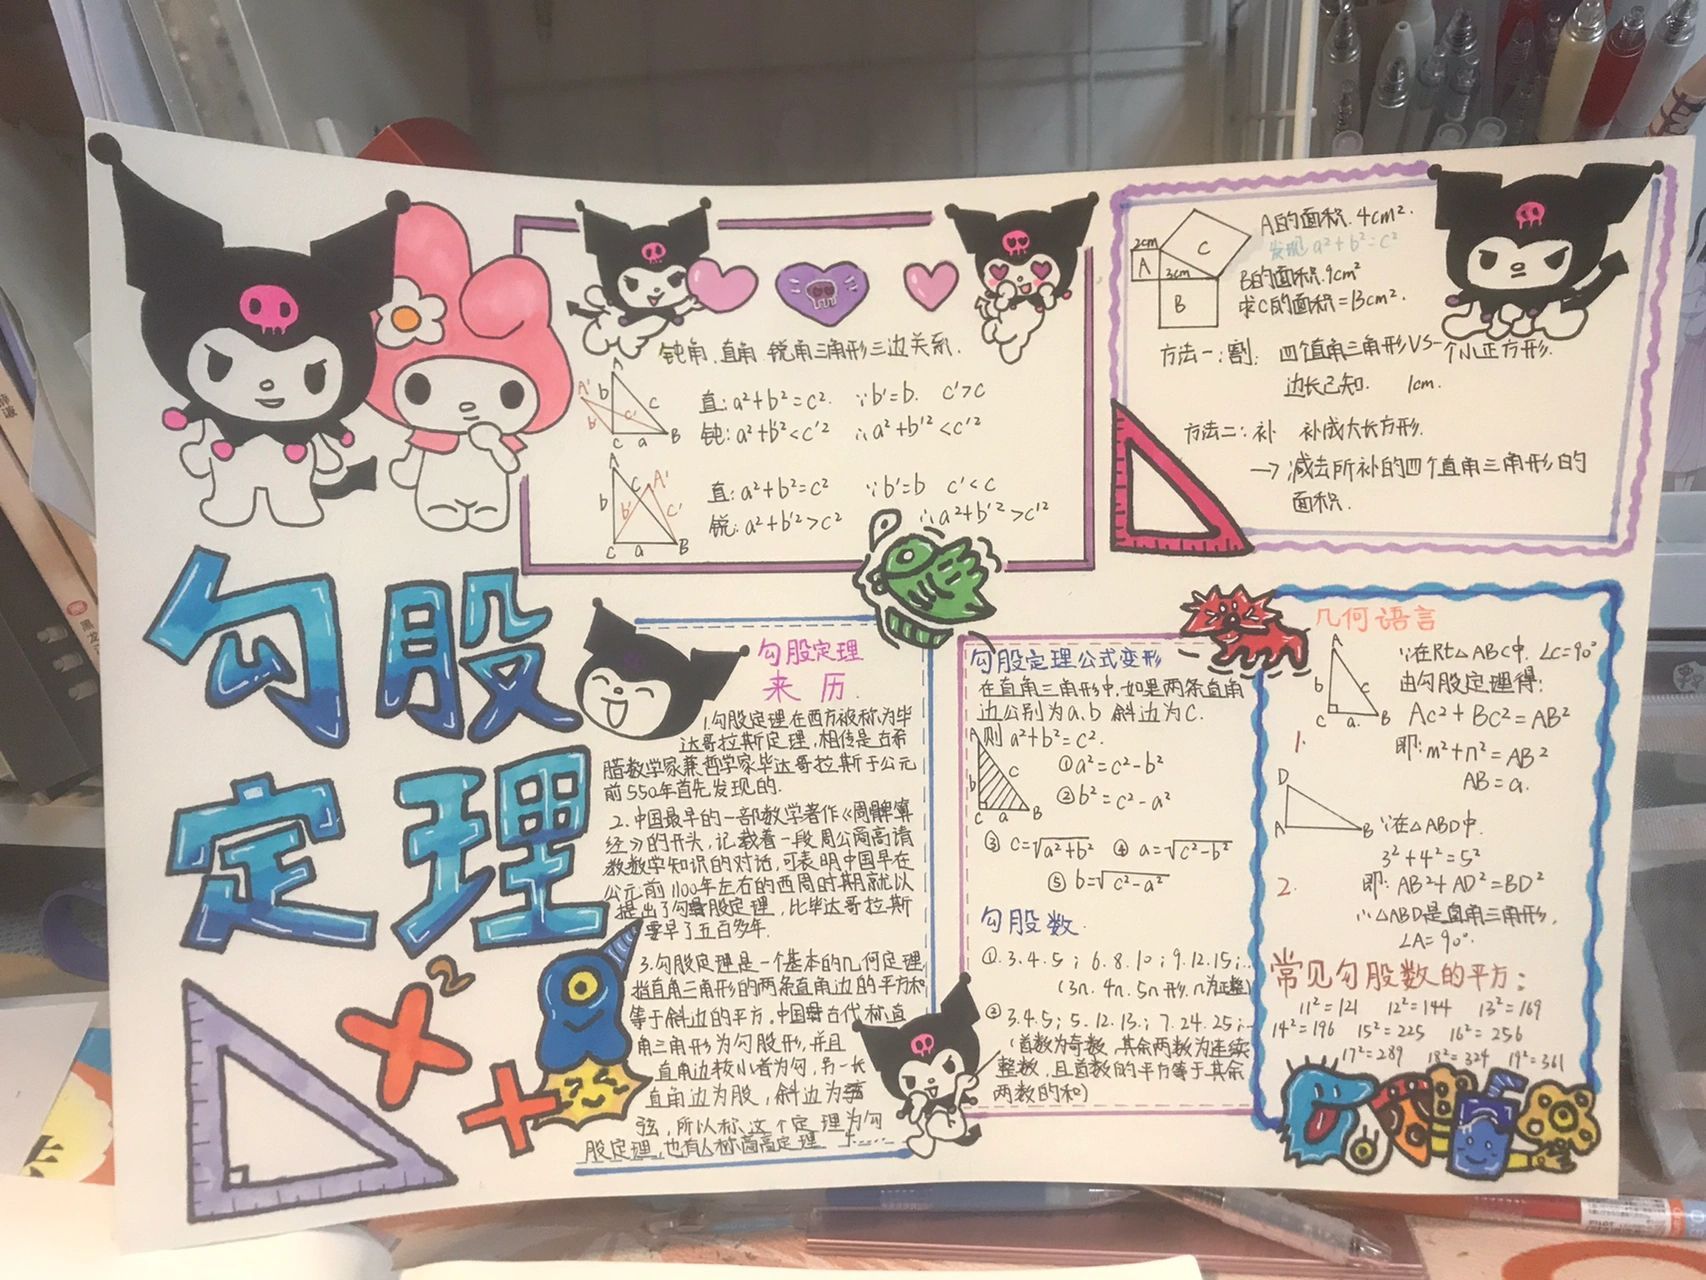 勾股
定理
钝角.直角 锐角三角形三边关系.
A'
A
b
c
b'
c'
C
a
B
直: a²+b²=c². ∵b'=b. c'>c
钝: a²+b²<c'² ∴a²+b'²<c'²
A
b
c
A'
b'
c'
C
a
B
直: a²+b²=c² ∵b'=b c'<c
锐: a²+b'²>c² ∴a²+b'²>c'²
2cm
A
C
3cm
B
A的面积.4cm².
发现 a²+b²=c²
B的面积.9cm²
求C的面积=13cm².
方法一:割: 四个直角三角形VS一个小正方形.
边长已知. 1cm.
方法二:补 补成大长方形.
→减去所补的四个直角三角形的
面积.
勾股定理
来历.
1.勾股定理在西方被称为毕
达哥拉斯定理,相传是古希
腊数学家兼哲学家毕达哥拉斯于公元
前550年首先发现的.
2.中国最早的一部数学著作《周髀算
经》的开头,记载着一段周公商高请
教数学知识的对话,可表明中国早在
公元前1100年左右的西周时期就以
提出了勾股定理,比毕达哥拉斯
要早了五百多年.
3.勾股定理是一个基本的几何定理,
指直角三角形的两条直角边的平方和
等于斜边的平方,中国古代称直
角三角形为勾股形,并且
直角边较小者为勾,另一长
直角边为股,斜边为
弦,所以称这个定理为勾
股定理,也有人称商高定理
勾股定理公式变形
在直角三角形中,如果两条直角
边公别为a.b 斜边为C.
则a²+b²=c².
A
b
c
C
a
B
①a²=c²-b²
②b²=c²-a²
③ c=√a²+b² ④ a=√c²-b²
⑤ b=√c²-a²
勾股数
①.3.4.5; 6.8.10; 9.12.15;..
(3n. 4n. 5n形. n为正整)
②3.4.5; 5.12.13.; 7.24.25;..
(首数为奇数,其余两数为连续
整数,且首数的平方等于其余
两数的和)
几何语言
A
b
c
C
a.
B
∵在Rt△ABC中, ∠C=90°
由勾股定理得:
Ac²+Bc²=AB²
1.
即: m²+n²=AB²
AB=a.
D
A
B
∵在△ABD中.
3²+4²=5²
2.
即: AB²+AD²=BD²
∴△ABD是直角三角形,
∠A=90°.
常见勾股数的平方:
11²=121 12²=144 13²=169
14²=196 15²=225 16²=256
17²=289 18²=324 19²=361
×²
+